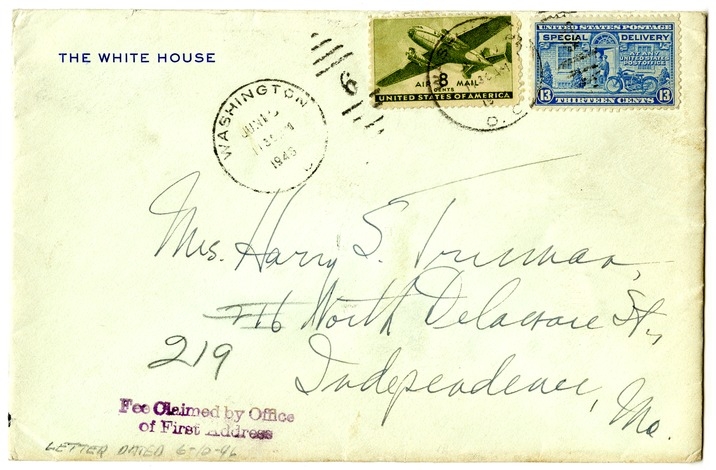 THE WHITE HOUSE
WASHINGTON
1946
D.C.
6
8
CENTS
AIR MAIL
UNITED STATES OF AMERICA
UNITED STATES POSTAGE
SPECIAL DELIVERY
AT ANY
UNITED STATES
POST OFFICE
13 THIRTEEN CENTS 13
Mrs. Harry S. Truman,
716 North Delaware St.,
219
Independence, Mo.
Fee Claimed by Office
of First Address
LETTER DATED 6-12-46